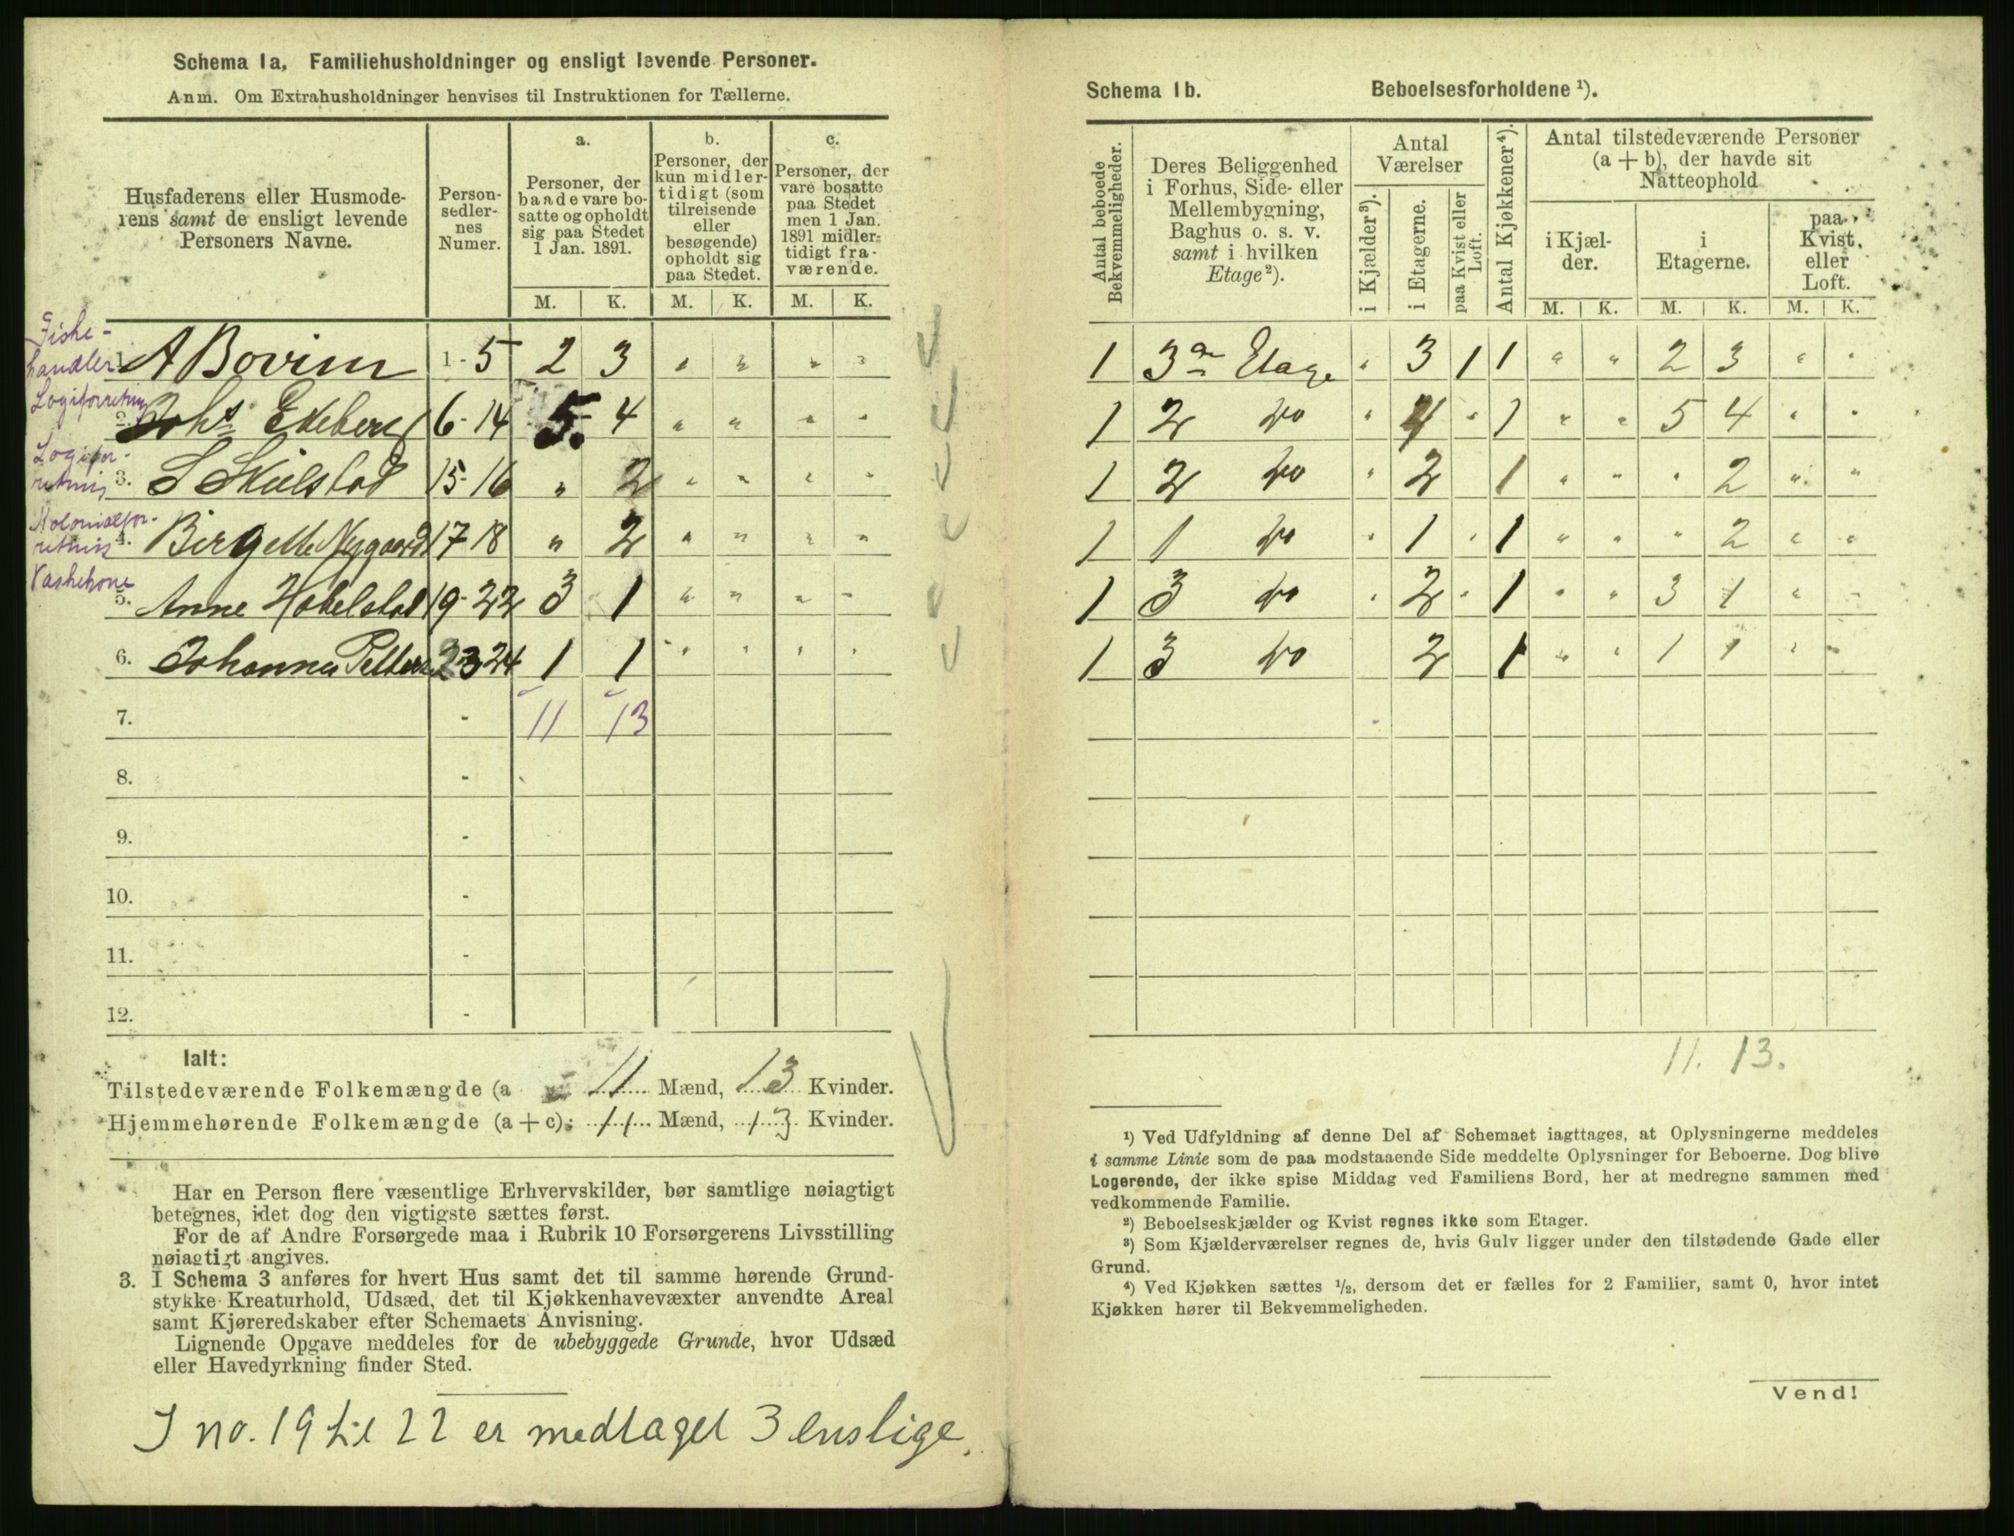 Schema 1a. Familiehusholdninger og ensligt levende Personer.
Anm. Om Extrahusholdninger henvises til Instruktionen for Tællerne.
Husfaderens eller Husmoderens samt de ensligt levende Personers Navne.
Personsedlernes Numer.
a. Personer, der baade vare bosatte og opholdt sig paa Stedet 1 Jan. 1891.
b. Personer, der kun midlertidigt (som tilreisende eller besøgende) opholdt sig paa Stedet.
c. Personer, der vare bosatte paa Stedet men 1 Jan. 1891 midlertidigt fraværende.
M. K. M. K. M. K.
Fiskehandler 1. A Bovim 1-5 2 3 " " " "
Logiforretning 2. Johs Ekeberg 6-14 5. 4 " " " "
Logiforretnis 3. S Skielstad 15-16 " 2 " " " "
Kolonialforretnis 4. Birgette Nygaard 17-18 " 2 " " " "
Vaskekone 5. Anne Hobelstad 19-22 3 1 " " " "
6. Johanna 23-24 1 1 " " " "
7. - 11 13
8. -
9. -
10. -
11. -
12. -
Ialt:
Tilstedeværende Folkemængde (a 11 Mænd, 13 Kvinder.
Hjemmehørende Folkemængde (a + c): 11 Mænd, 13 Kvinder.
Har en Person flere væsentlige Erhvervskilder, bør samtlige nøiagtigt
betegnes, idet dog den vigtigste sættes først.
For de af Andre Forsørgede maa i Rubrik 10 Forsørgerens Livsstilling
nøiagtigt angives.
3. I Schema 3 anføres for hvert Hus samt det til samme hørende Grund-
stykke Kreaturhold, Udsæd, det til Kjøkkenhavevæxter anvendte Areal
samt Kjøreredskaber efter Schemaets Anvisning.
Lignende Opgave meddeles for de ubebyggede Grunde, hvor Udsæd
eller Havedyrkning finder Sted.
I no. 19 til 22 er medtaget 3 enslige.
Schema 1b. Beboelsesforholdene ¹).
Antal beboede Bekvemmeligheder.
Deres Beliggenhed i Forhus, Side- eller Mellembygning, Baghus o. s. v. samt i hvilken Etage ²).
Antal Værelser
i Kjælder ³). i Etagerne. paa Kvist eller Loft.
Antal Kjøkkener ⁴).
Antal tilstedeværende Personer (a + b), der havde sit Natteophold
i Kjælder. i Etagerne. paa Kvist eller Loft.
M. K. M. K. M. K.
1 3de Etage " 3 1 1 " " 2 3 " "
1 2 do " 4 " 1 " " 5 4 " "
1 2 do " 2 1 " " " 2 " "
1 1 do " 1 " 1 " " " 2 " "
1 3 do " 2 " 1 " " 3 1 " "
1 3 do 2 1 " " 1 1 " "
11. 13.
¹) Ved Udfyldning af denne Del af Schemaet iagttages, at Oplysningerne meddeles
i samme Linie som de paa modstaaende Side meddelte Oplysninger for Beboerne. Dog blive
Logerende, der ikke spise Middag ved Familiens Bord, her at medregne sammen med
vedkommende Familie.
²) Beboelseskjælder og Kvist regnes ikke som Etager.
³) Som Kjælderværelser regnes de, hvis Gulv ligger under den tilstødende Gade eller
Grund.
⁴) Ved Kjøkken sættes ½, dersom det er fælles for 2 Familier, samt 0, hvor intet
Kjøkken hører til Bekvemmeligheden.
Vend!